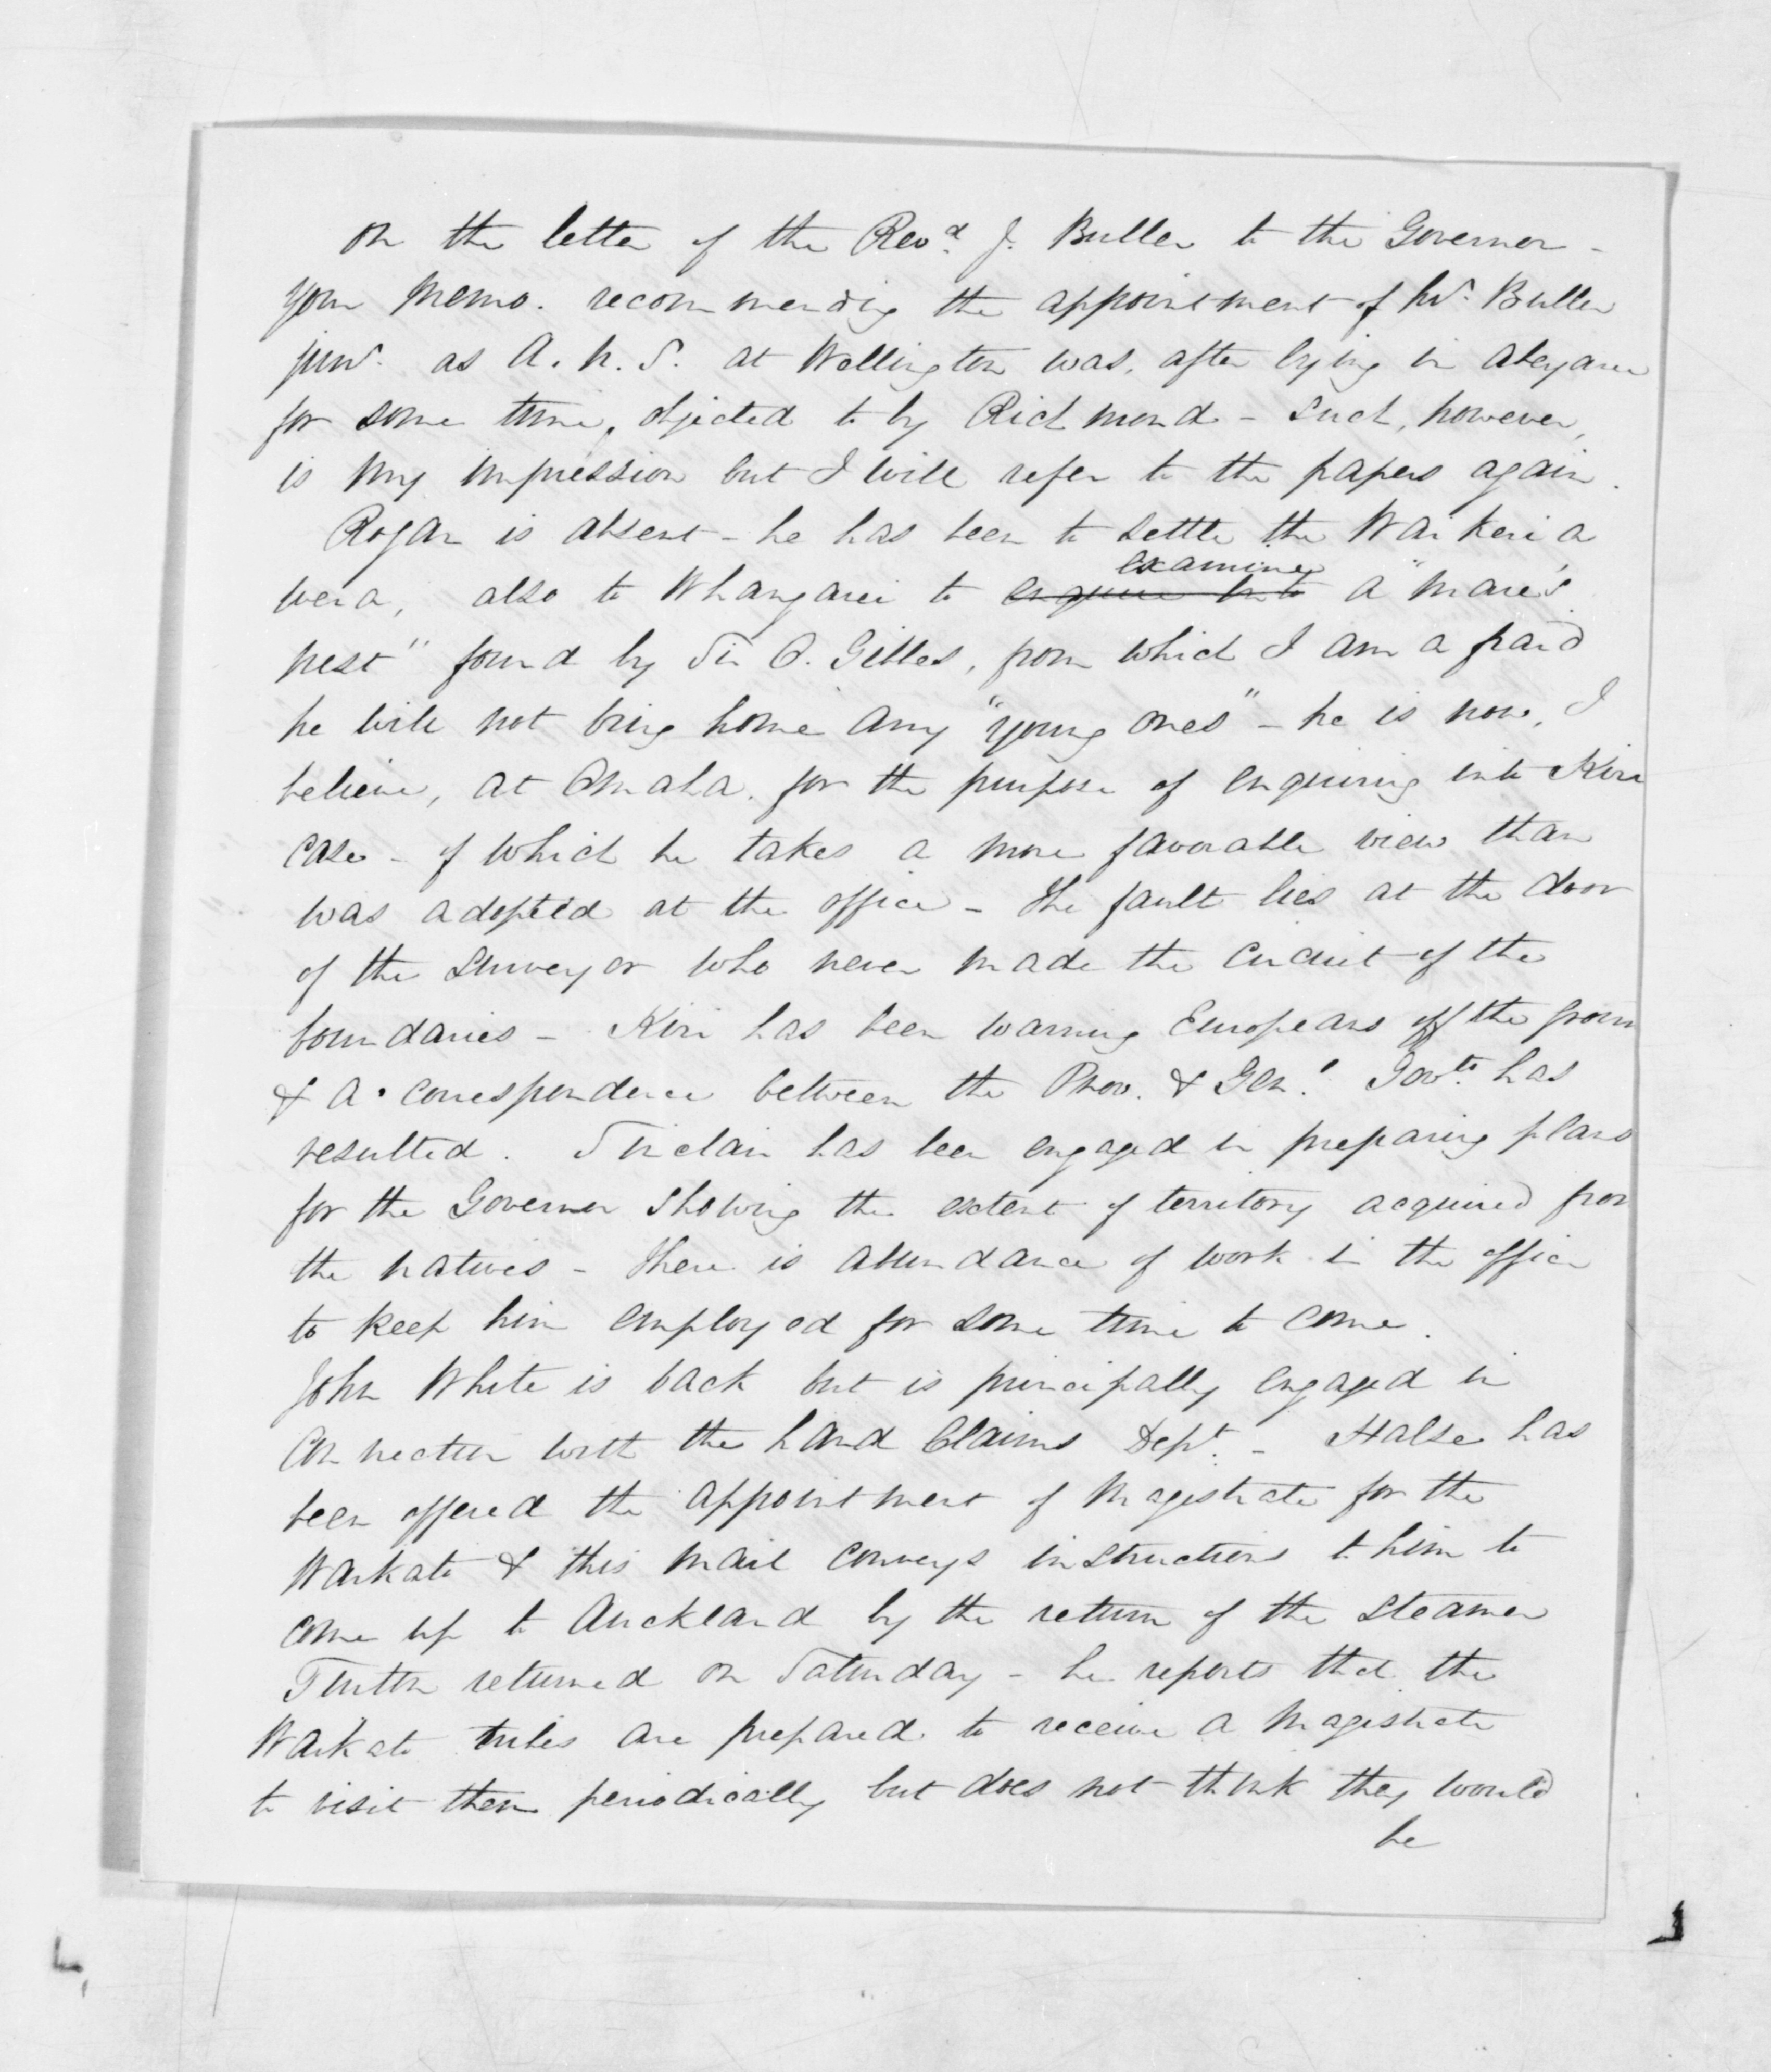 On the letter of the Revd. J. Buller to the Governor -
your memo. recommending the appointment of Mr. Buller
junr. as A. N. S. at Wellington was, after lying in abeyance
for some time, objected to by Richmond - Such, however,
is my impression but I will refer to the papers again.
Rogan is absent - he has been to settle the Wai Keri a
wera, also to Whangarei to enquire into examine a "mare's
nest" found by Sir O. Gibbes, from which I am afraid
he will not bring home any "young ones" - he is now, I
believe, at Omaha, for the purpose of enquiring into Kiri
case - of which he takes a more favorable view than
was adopted at the office - The fault lies at the door
of the Surveyor who never made the circuit of the
boundaries - Kiri has been warning Europeans off the groun
& a correspondence between the Prov. & Genl. Govts. has
resulted. Sinclair has been engaged in preparing plans
for the Governor showing the extent of territory acquired from
the natives - There is abundance of work in the office
to keep him employed for some time to come.
John White is back but is principally engaged in
connection with the Land Claims Dept. - Halse has
been offered the appointment of Magistrate for the
Waikato & this mail conveys instructions to him to
come up to Auckland by the return of the Steamer
Turton returned on Saturday - he reports that the
Waikato tribes are prepared to receive a Magistrate
to visit them periodically but does not think they would
be